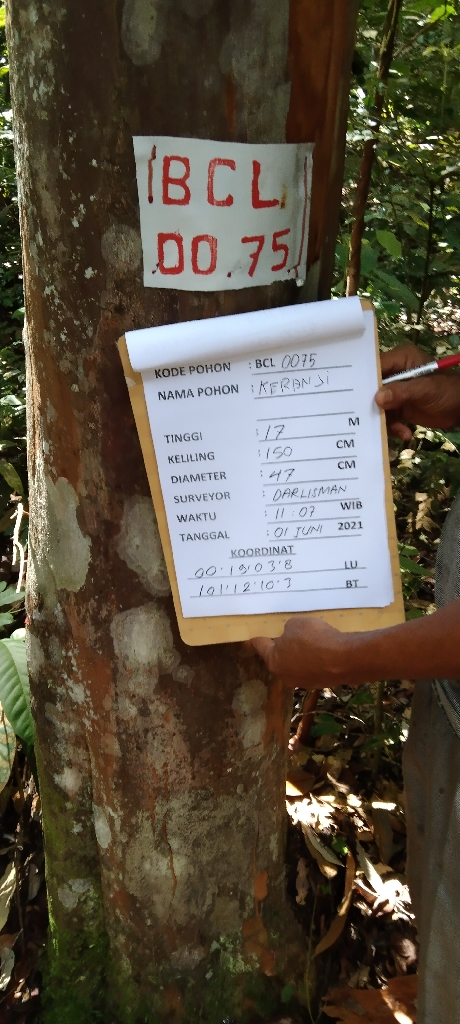 BCL
00.75
KODE POHON : BCL 0075
NAMA POHON : KERANJI
TINGGI : 17 M
KELILING : 150 CM
DIAMETER : 47 CM
SURVEYOR : DARLISMAN
WAKTU : 11:07 WIB
TANGGAL : 01 JUNI 2021
KOORDINAT
00°19'03'8 LU
101°12'10'3 BT